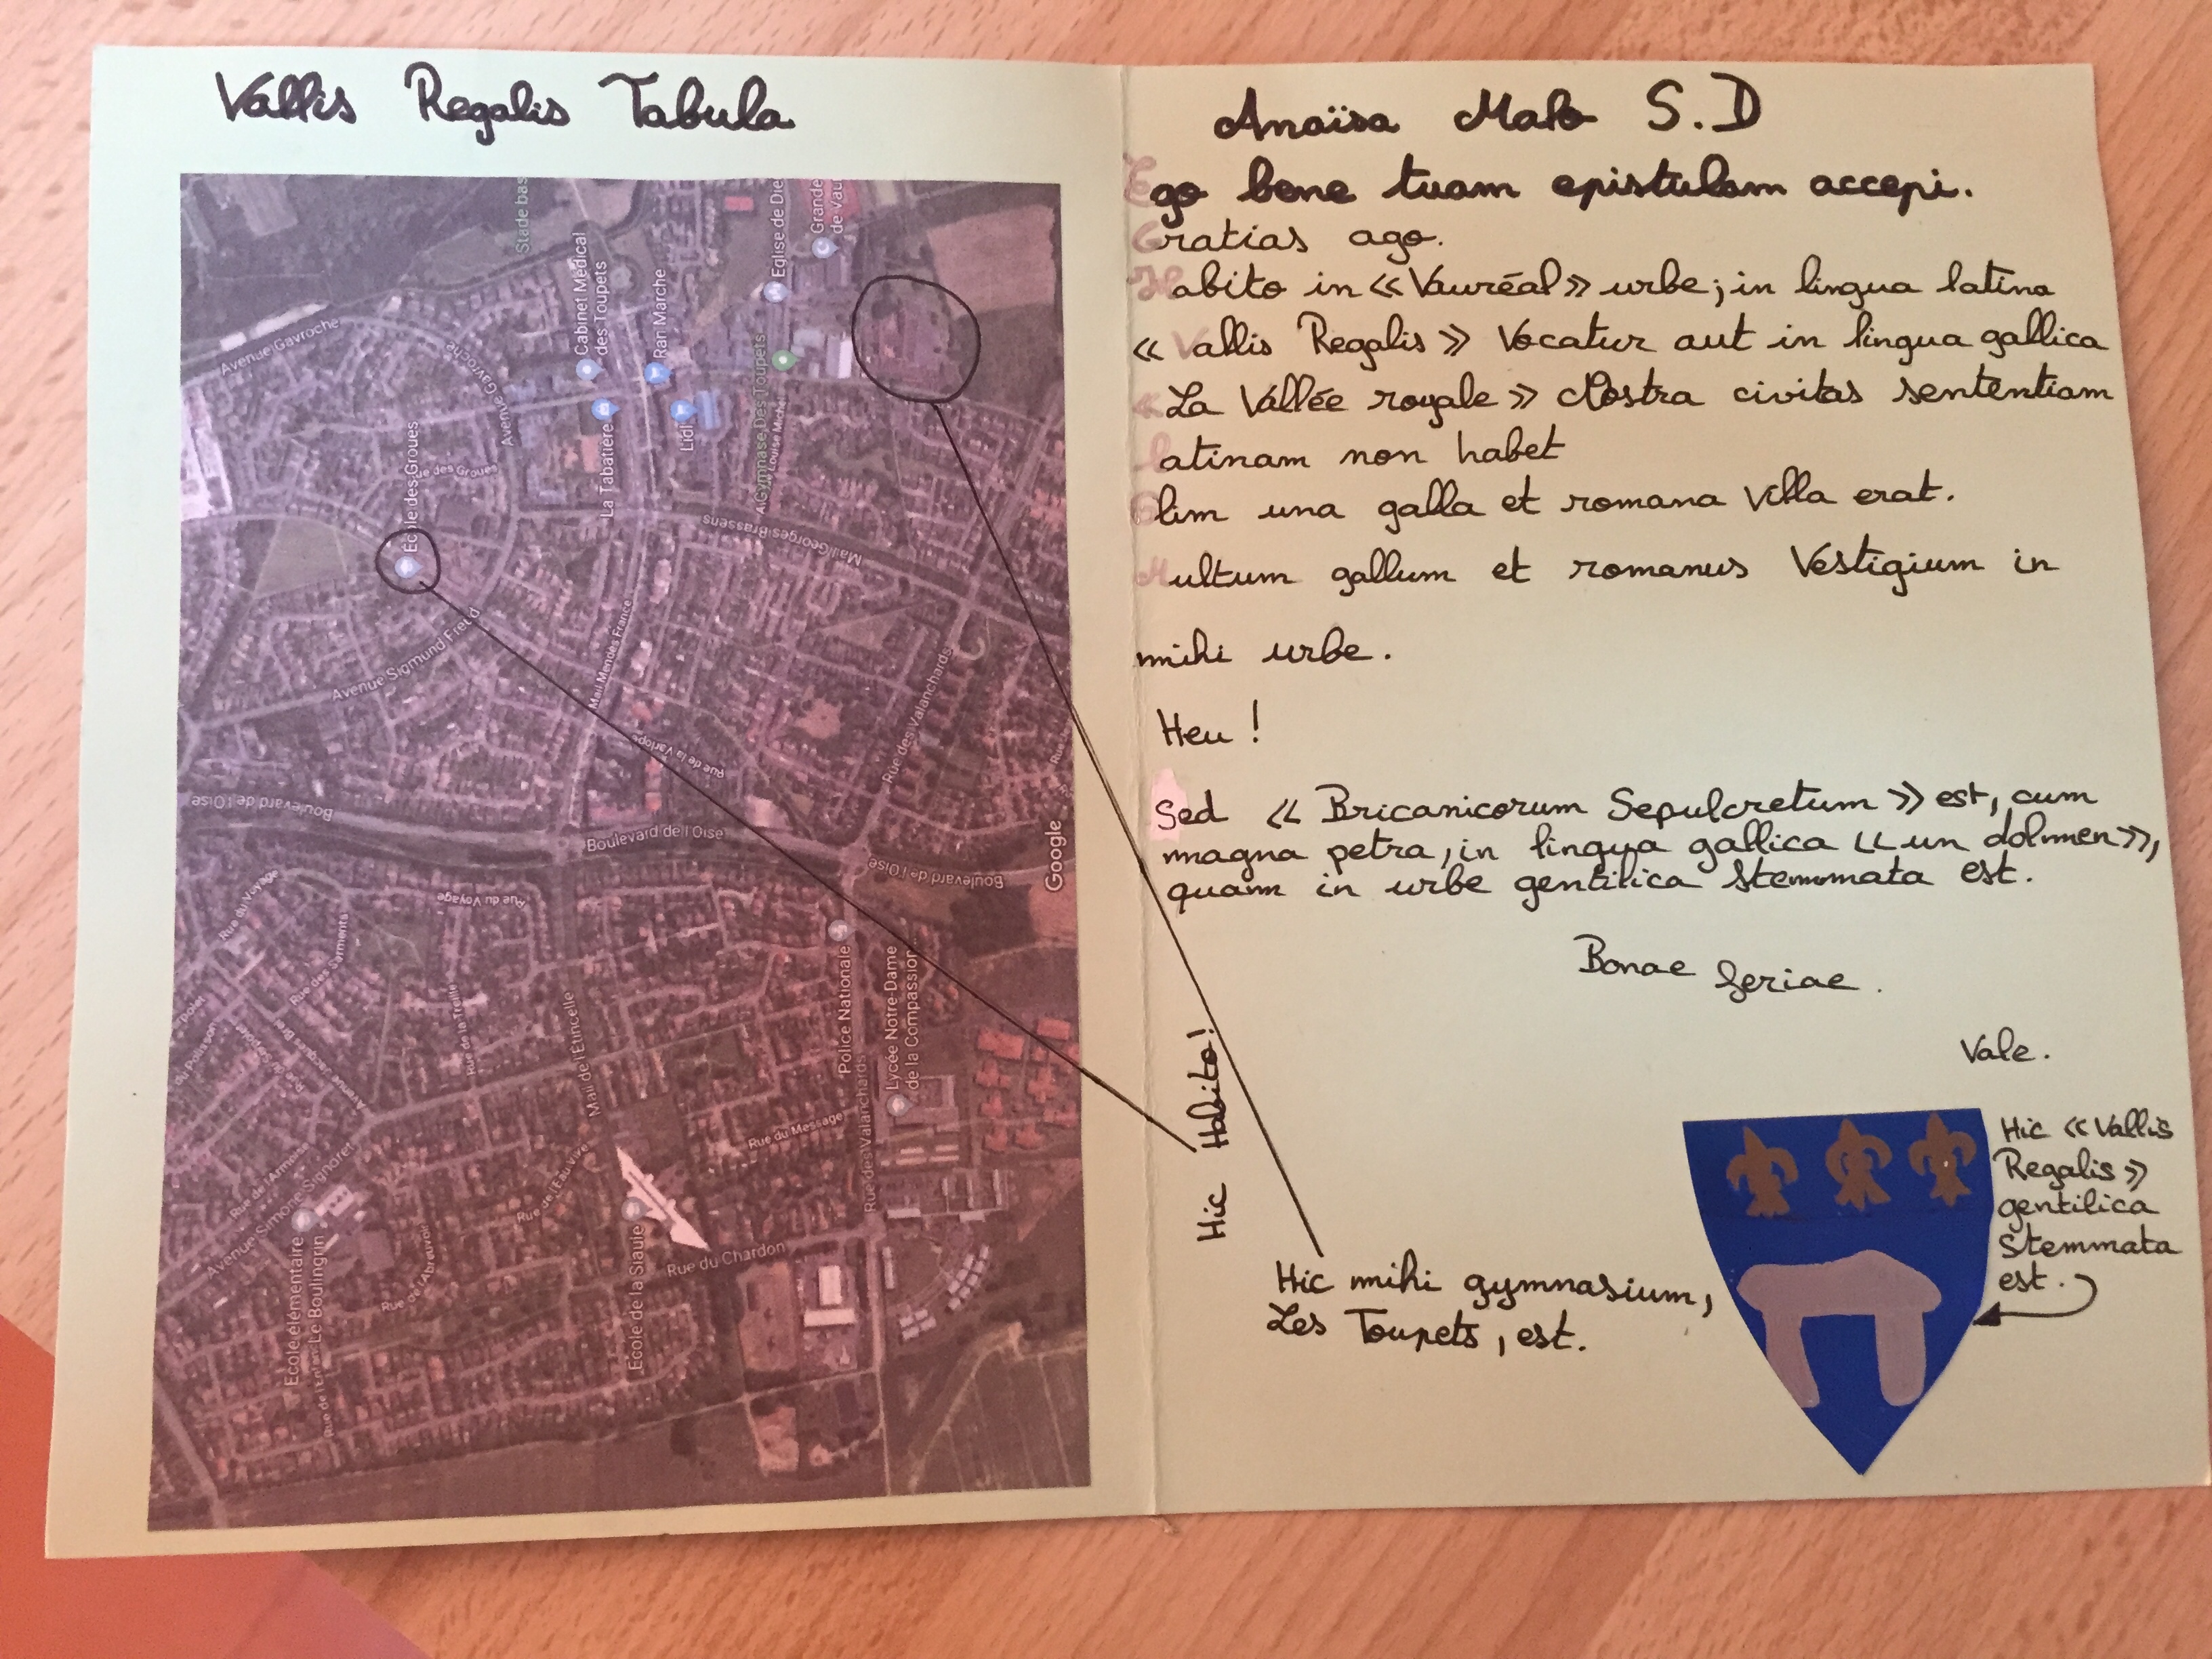 Vallis Regalis Tabula
Stade bas
Cabinet Médical
des Toupets
Ran Marche
Eglise de Die
Grande
de Vau
Avenue Gavroche
Avenue Gavroche
La Tabatière
Lidl
Gymnase Des Toupets
Louise Michel
École des Groues
Rue des Groues
Mail Georges Brassens
Avenue Sigmund Freud
Mail Mendès France
Rue des Valanchards
Rue de la Varlope
Boulevard de l'Oise
Boulevard de l'Oise
Boulevard de l'Oise
Google
Rue du Voyage
Rue du Voyage
Rue des Sarments
Rue de la Treille
Avenue Jacques Brel
Mail de l'Étincelle
Police Nationale
Lycée Notre-Dame
de la Compassion...
Rue du Message
Rue des Valanchards
Rue de l'Armoise
Avenue Simone Signoret
Rue de l'Eau Vive
Rue de l'Abreuvoir
École élémentaire
Le Boulingrin
École de la Siaule
Rue du Chardon
Anaïsa Malo S.D
Ego bene tuam epistulam accepi.
Gratias ago.
Habito in « Vauréal » urbe ; in lingua latina
« Vallis Regalis » Vocatur aut in lingua gallica
« La Vallée royale » Nostra civitas sententiam
latinam non habet
Olim una galla et romana Villa erat.
Multum gallum et romanus Vestigium in
mihi urbe.
Heu !
Sed « Bricanicorum Sepulcretum » est, cum
magna petra, in lingua gallica « un dolmen »,
quam in urbe gentilica Stemmata est.
Bonae feriae.
Vale.
Hic Habito !
Hic mihi gymnasium,
Les Toupets, est.
Hic « Vallis
Regalis »
gentilica
Stemmata
est.